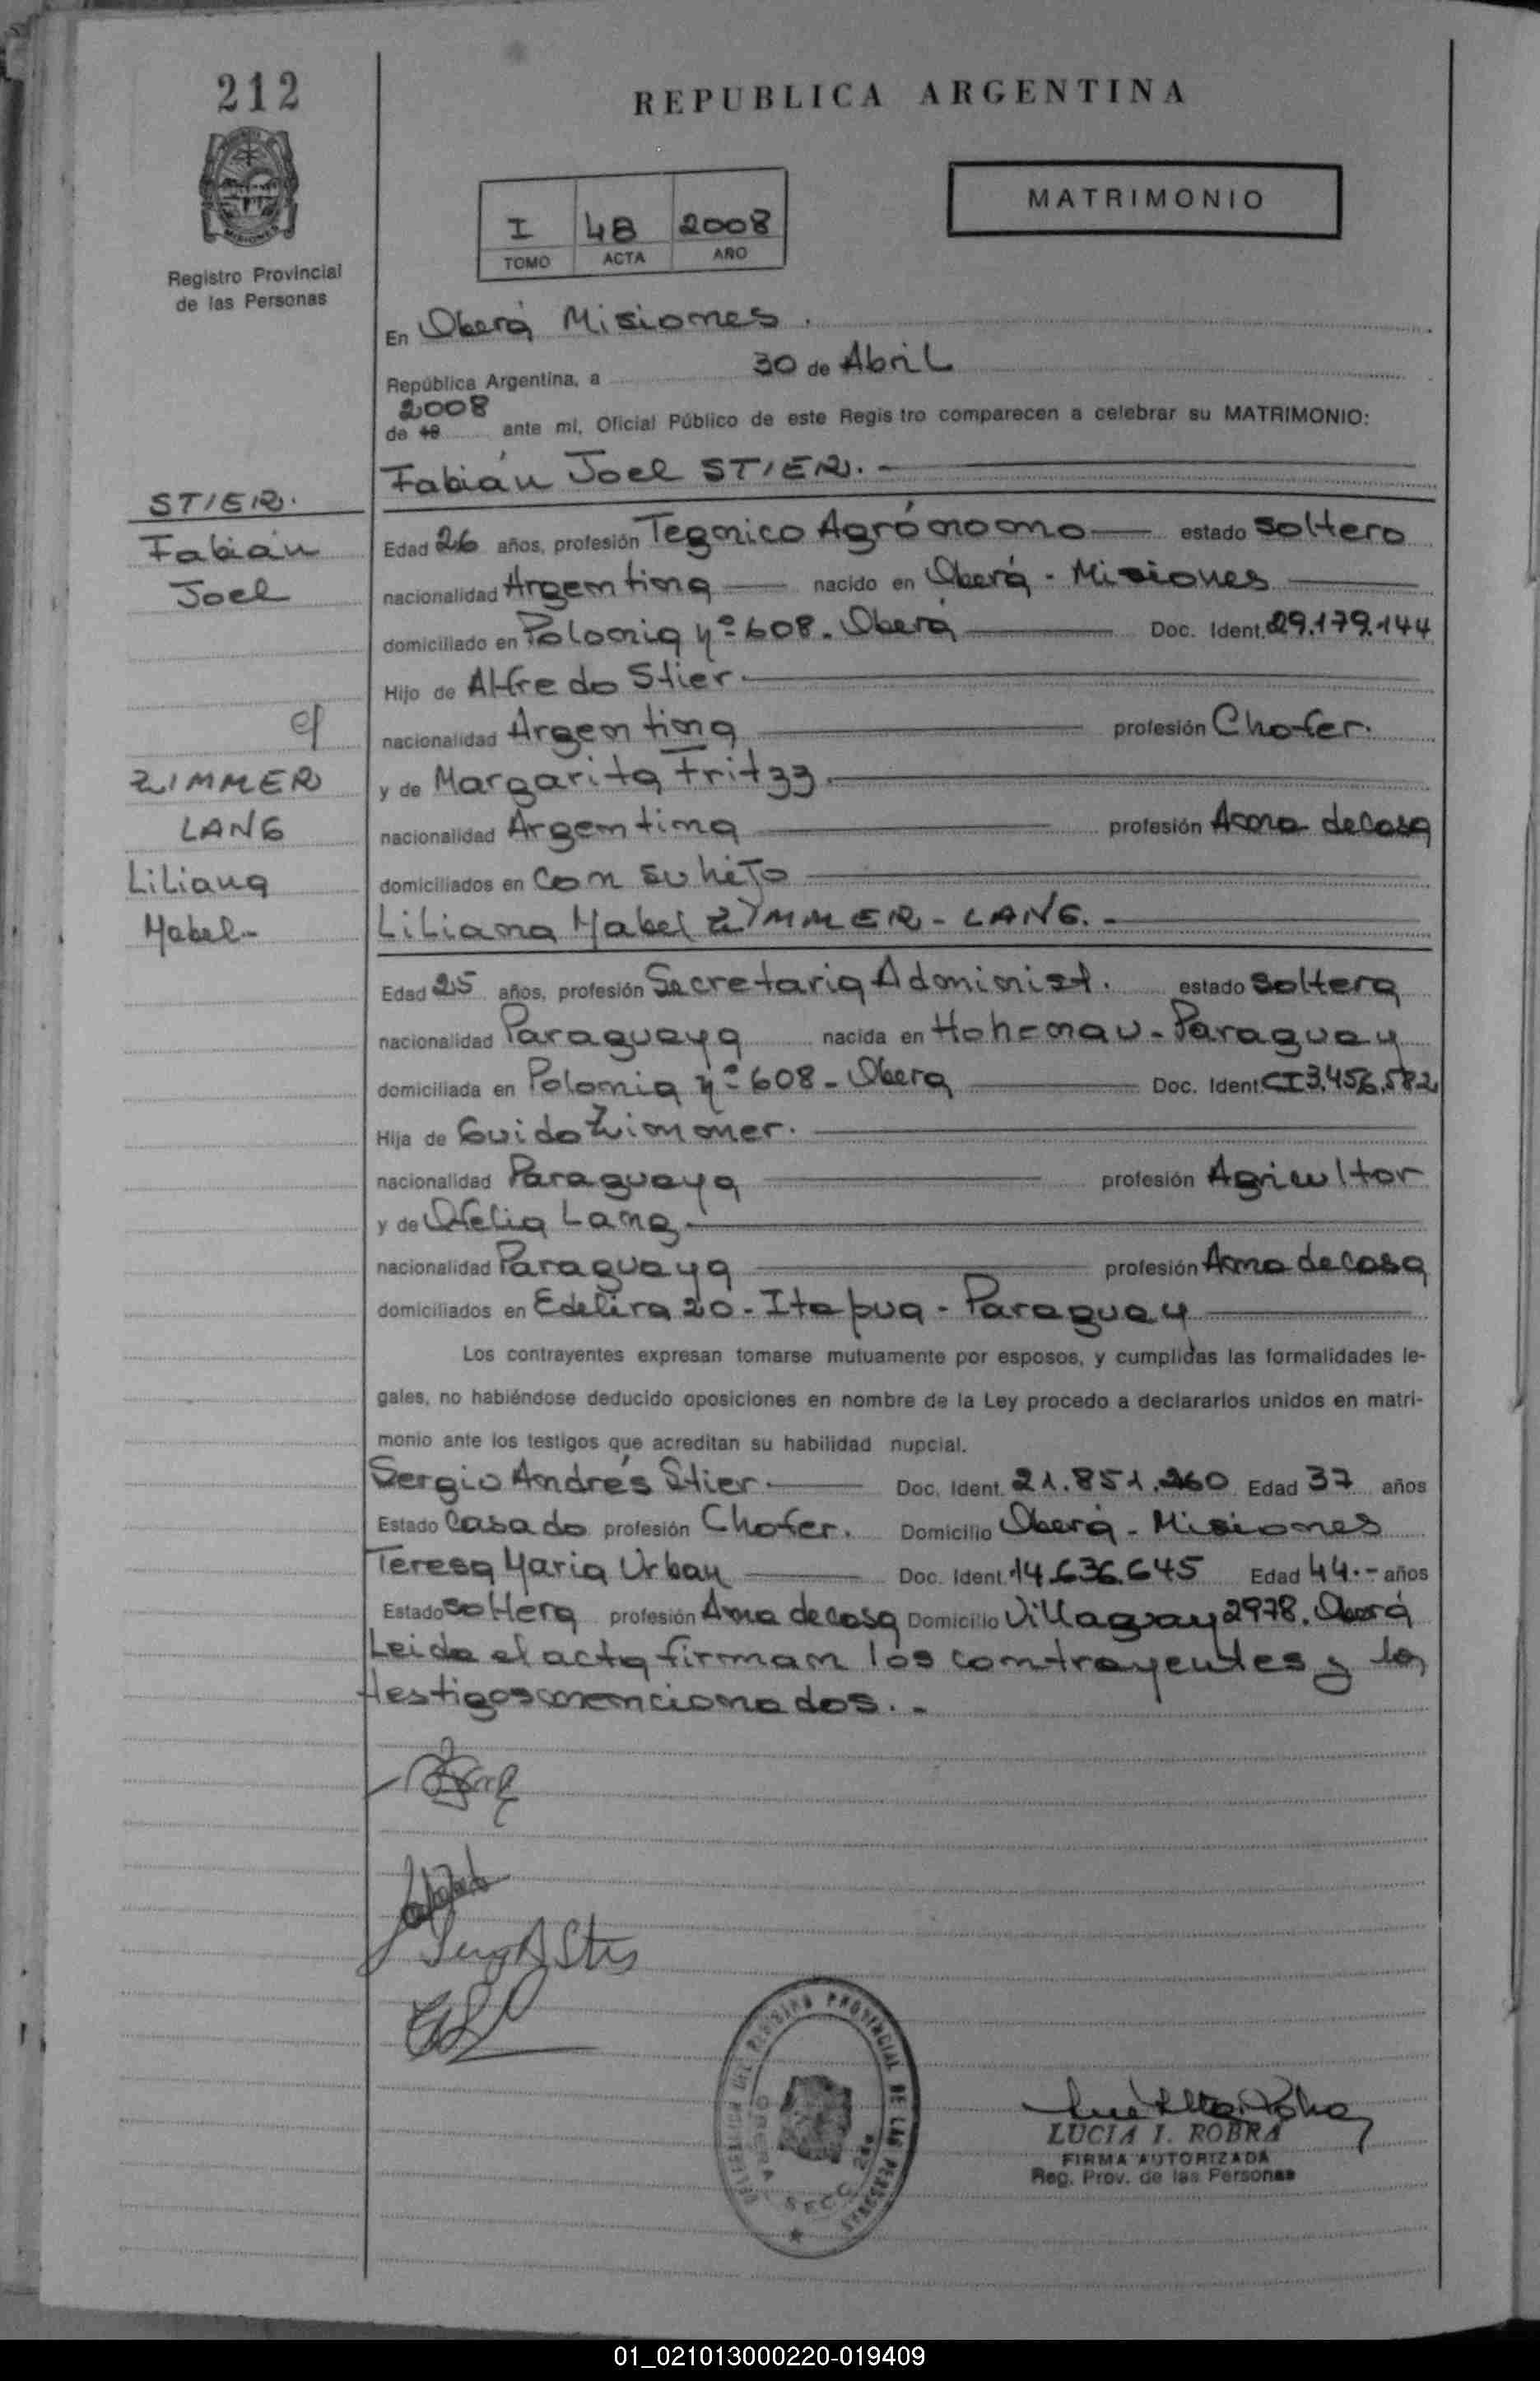 212
REPUBLICA ARGENTINA
MISIONES
Registro Provincial
de las Personas
I 48 2008
TOMO ACTA AÑO
MATRIMONIO
En Oberá Misiones.
República Argentina, a 30 de Abril
2008
de 19 ante mi, Oficial Público de este Regis tro comparecen a celebrar su MATRIMONIO:
Fabián Joel STIER. -
STIER.
Fabián
Joel
c/
ZIMMER
LANG
Liliana
Mabel-
Edad 26 años, profesión Tegnico Agrónomo estado soltero
nacionalidad Argentina nacido en Oberá - Misiones
domiciliado en Polonia nº 608. Oberá Doc. Ident. 29.179.144
Hijo de Alfredo Stier.
nacionalidad Argentina profesión Chofer.
y de Margarita Fritzz.
nacionalidad Argentina profesión Ama de casa
domiciliados en con su hijo
Liliana Mabel ZIMMER - LANG. -
Edad 25 años, profesión Secretaria Administ. estado soltera
nacionalidad Paraguaya nacida en Hohenau - Paraguay
domiciliada en Polonia nº 608 - Obera Doc. Ident CI 3.456.582
Hija de Guido Zimmer.
nacionalidad Paraguaya profesión Agricultor
y de Ofelia Lang.
nacionalidad Paraguaya profesión Ama de casa
domiciliados en Edelira 20 - Itapua - Paraguay
Los contrayentes expresan tomarse mutuamente por esposos, y cumplidas las formalidades le-
gales, no habiéndose deducido oposiciones en nombre de la Ley procedo a declararlos unidos en matri-
monio ante los testigos que acreditan su habilidad nupcial.
Sergio Andrés Stier. Doc. Ident. 21.851.260 Edad 37 años
Estado Casado profesión Chofer. Domicilio Oberá - Misiones
Teresa Maria Urban Doc. Ident. 14.636.645 Edad 44.- años
Estado soltera profesión Ama de casa Domicilio Villaguay 2978. Oberá
Leida el acta firman los contrayentes y los
testigos mencionados. -
REGISTRO PROVINCIAL DE LAS PERSONAS
OBERA SECC.
LUCIA I. ROBRA
FIRMA AUTORIZADA
Reg. Prov. de las Personas
01_021013000220-019409